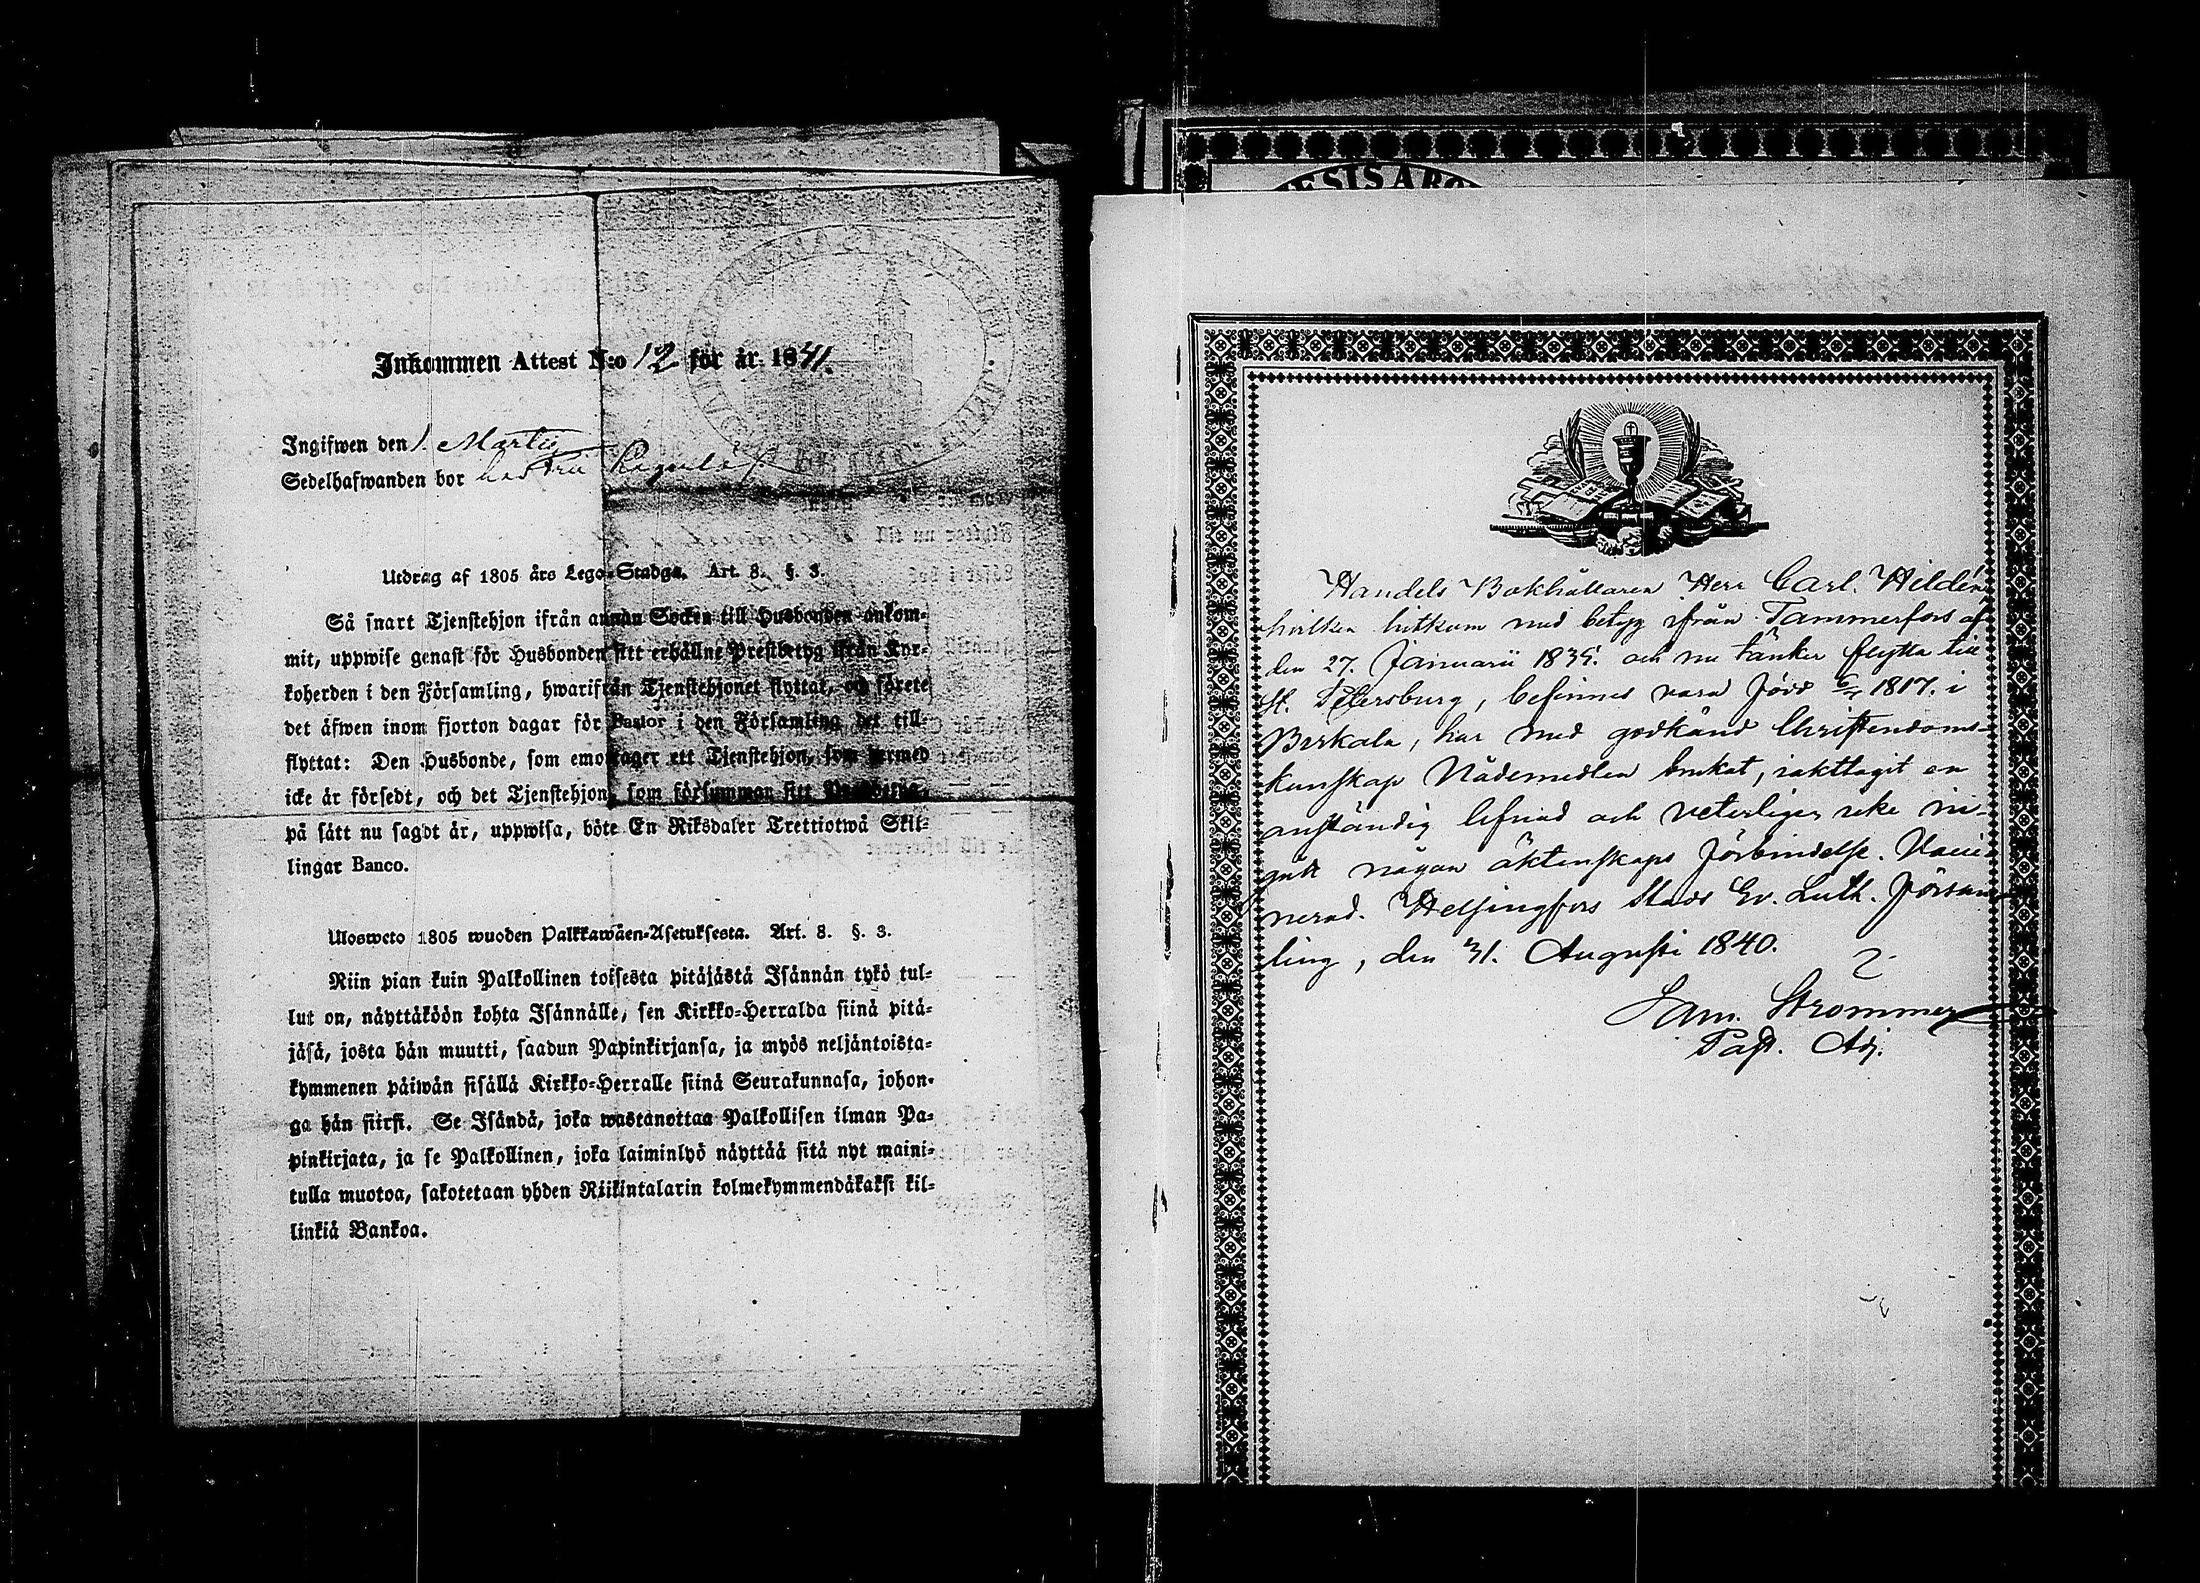 Inkommen Attest N:o 12 för år 1841.
Ingifwen den 1. Martii
Sedelhafwanden bor hos Fru
Utdrag af 1805 års Lego-Stadga. Art. 8. §. 3.
Så snart Tjenstehjon ifrån annan Socken till Husbonden ankom-
mit, uppwise genast för Husbonden sitt erhållne Prestbetyg ifrån Kyr-
koherden i den Församling, hwarifrån Tjenstehjonet flyttat, och förete
det äfwen inom fjorton dagar för Pastor i den Församling det till-
flyttat: Den Husbonde, som emottager ett Tjenstehjon, som härmed
icke är försedt, och det Tjenstehjon, som försummar sitt Prestbetyg,
på sätt nu sagdt är, uppwisa, böte En Riksdaler Trettiotwå Skil-
lingar Banco.
Ulosweto 1805 wuoden Palkkawäen-Asetuksesta. Art. 8. §. 3.
Niin pian kuin Palkollinen toisesta pitäjästä Isännän tykö tul-
lut on, näyttäköön kohta Isännälle, sen Kirkko-Herralda siinä pitä-
jäsä, josta hän muutti, saadun Papinkirjansa, ja myös neljäntoista-
kymmenen päiwän sisällä Kirkko-Herralle siinä Seurakunnasa, johon-
ga hän siirsi. Se Isändä, joka wastanottaa Palkollisen ilman Pa-
pinkirjata, ja se Palkollinen, joka laiminlyö näyttää sitä nyt maini-
tulla muotoa, sakotetaan yhden Riikintalarin kolmekymmendäkaksi kil-
linkiä Bankoa.
Handels Bokhållaren Herr Carl Hildén,
hvilken hitkom med betyg ifrån Tammerfors af
den 27. Januarii 1835. och nu tänker flytta till
St. Petersburg, befinnes vara född 6/4 1817. i
Birkala, har med godkänd Christendoms-
kunskap Nådemedlen brukat, iakttagit en
anständig lefnad och veterligen icke in-
gått någon äktenskaps förbindelse. Vacci-
nerad. Helsingfors Stads Ev. Luth. Försam-
ling, den 31. Augusti 1840.
Sam. Strommer
Past. Adj.